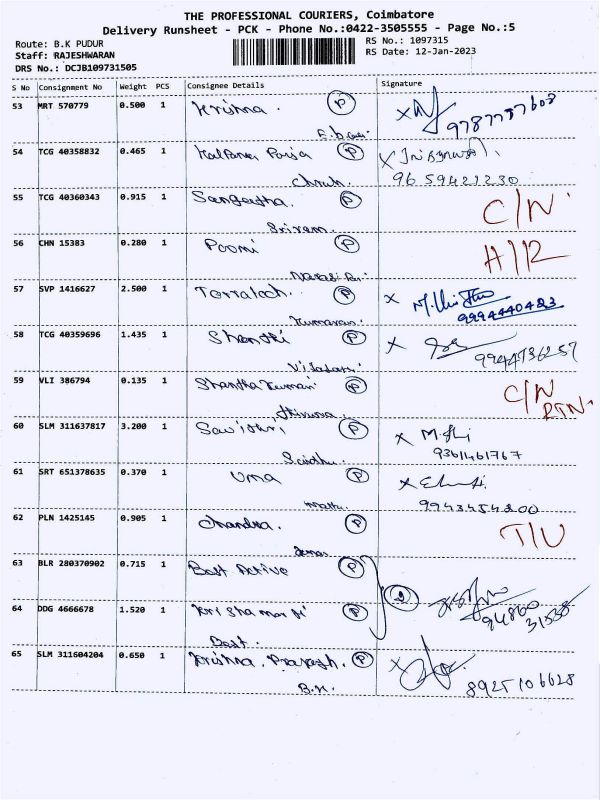 THE PROFESSIONAL COURIERS, Coimbatore
Delivery Runsheet - PCK - Phone No.:0422-3505555 - Page No.:5
Route: B.K PUDUR
RS No.: 1097315
Staff: RAJESHWARAN
RS Date: 12-Jan-2023
DRS No.: DCJB109731505
S No Consignment No Weight PCS Consignee Details Signature
53 MRT 570779 0.500 1 Krishna. P
9787757608
54 TCG 40358832 0.465 1 Kalpana P
9659421230
55 TCG 40360343 0.915 1 Sangeetha. P C/N
Sriram.
56 CHN 15383 0.280 1 Poomi P H/R
57 SVP 1416627 2.500 1 P
Kumaran. 9994440423
58 TCG 40359696 1.435 1 Shanthi P
9944736257
59 VLI 386794 0.135 1 Shantha Kumari P C/N
RTN
60 SLM 311637817 3.200 1 Savithri P M.
9361461767
61 SRT 651378635 0.370 1 Uma P
9943454200
62 PLN 1425145 0.905 1 Chandra. P T/U
63 BLR 280370902 0.715 1 Best Active P
64 DDG 4666678 1.520 1 P 2
94860
31538
Best.
65 SLM 311604204 0.650 1 Krishna. Prakash. P
B.K. 8925106628